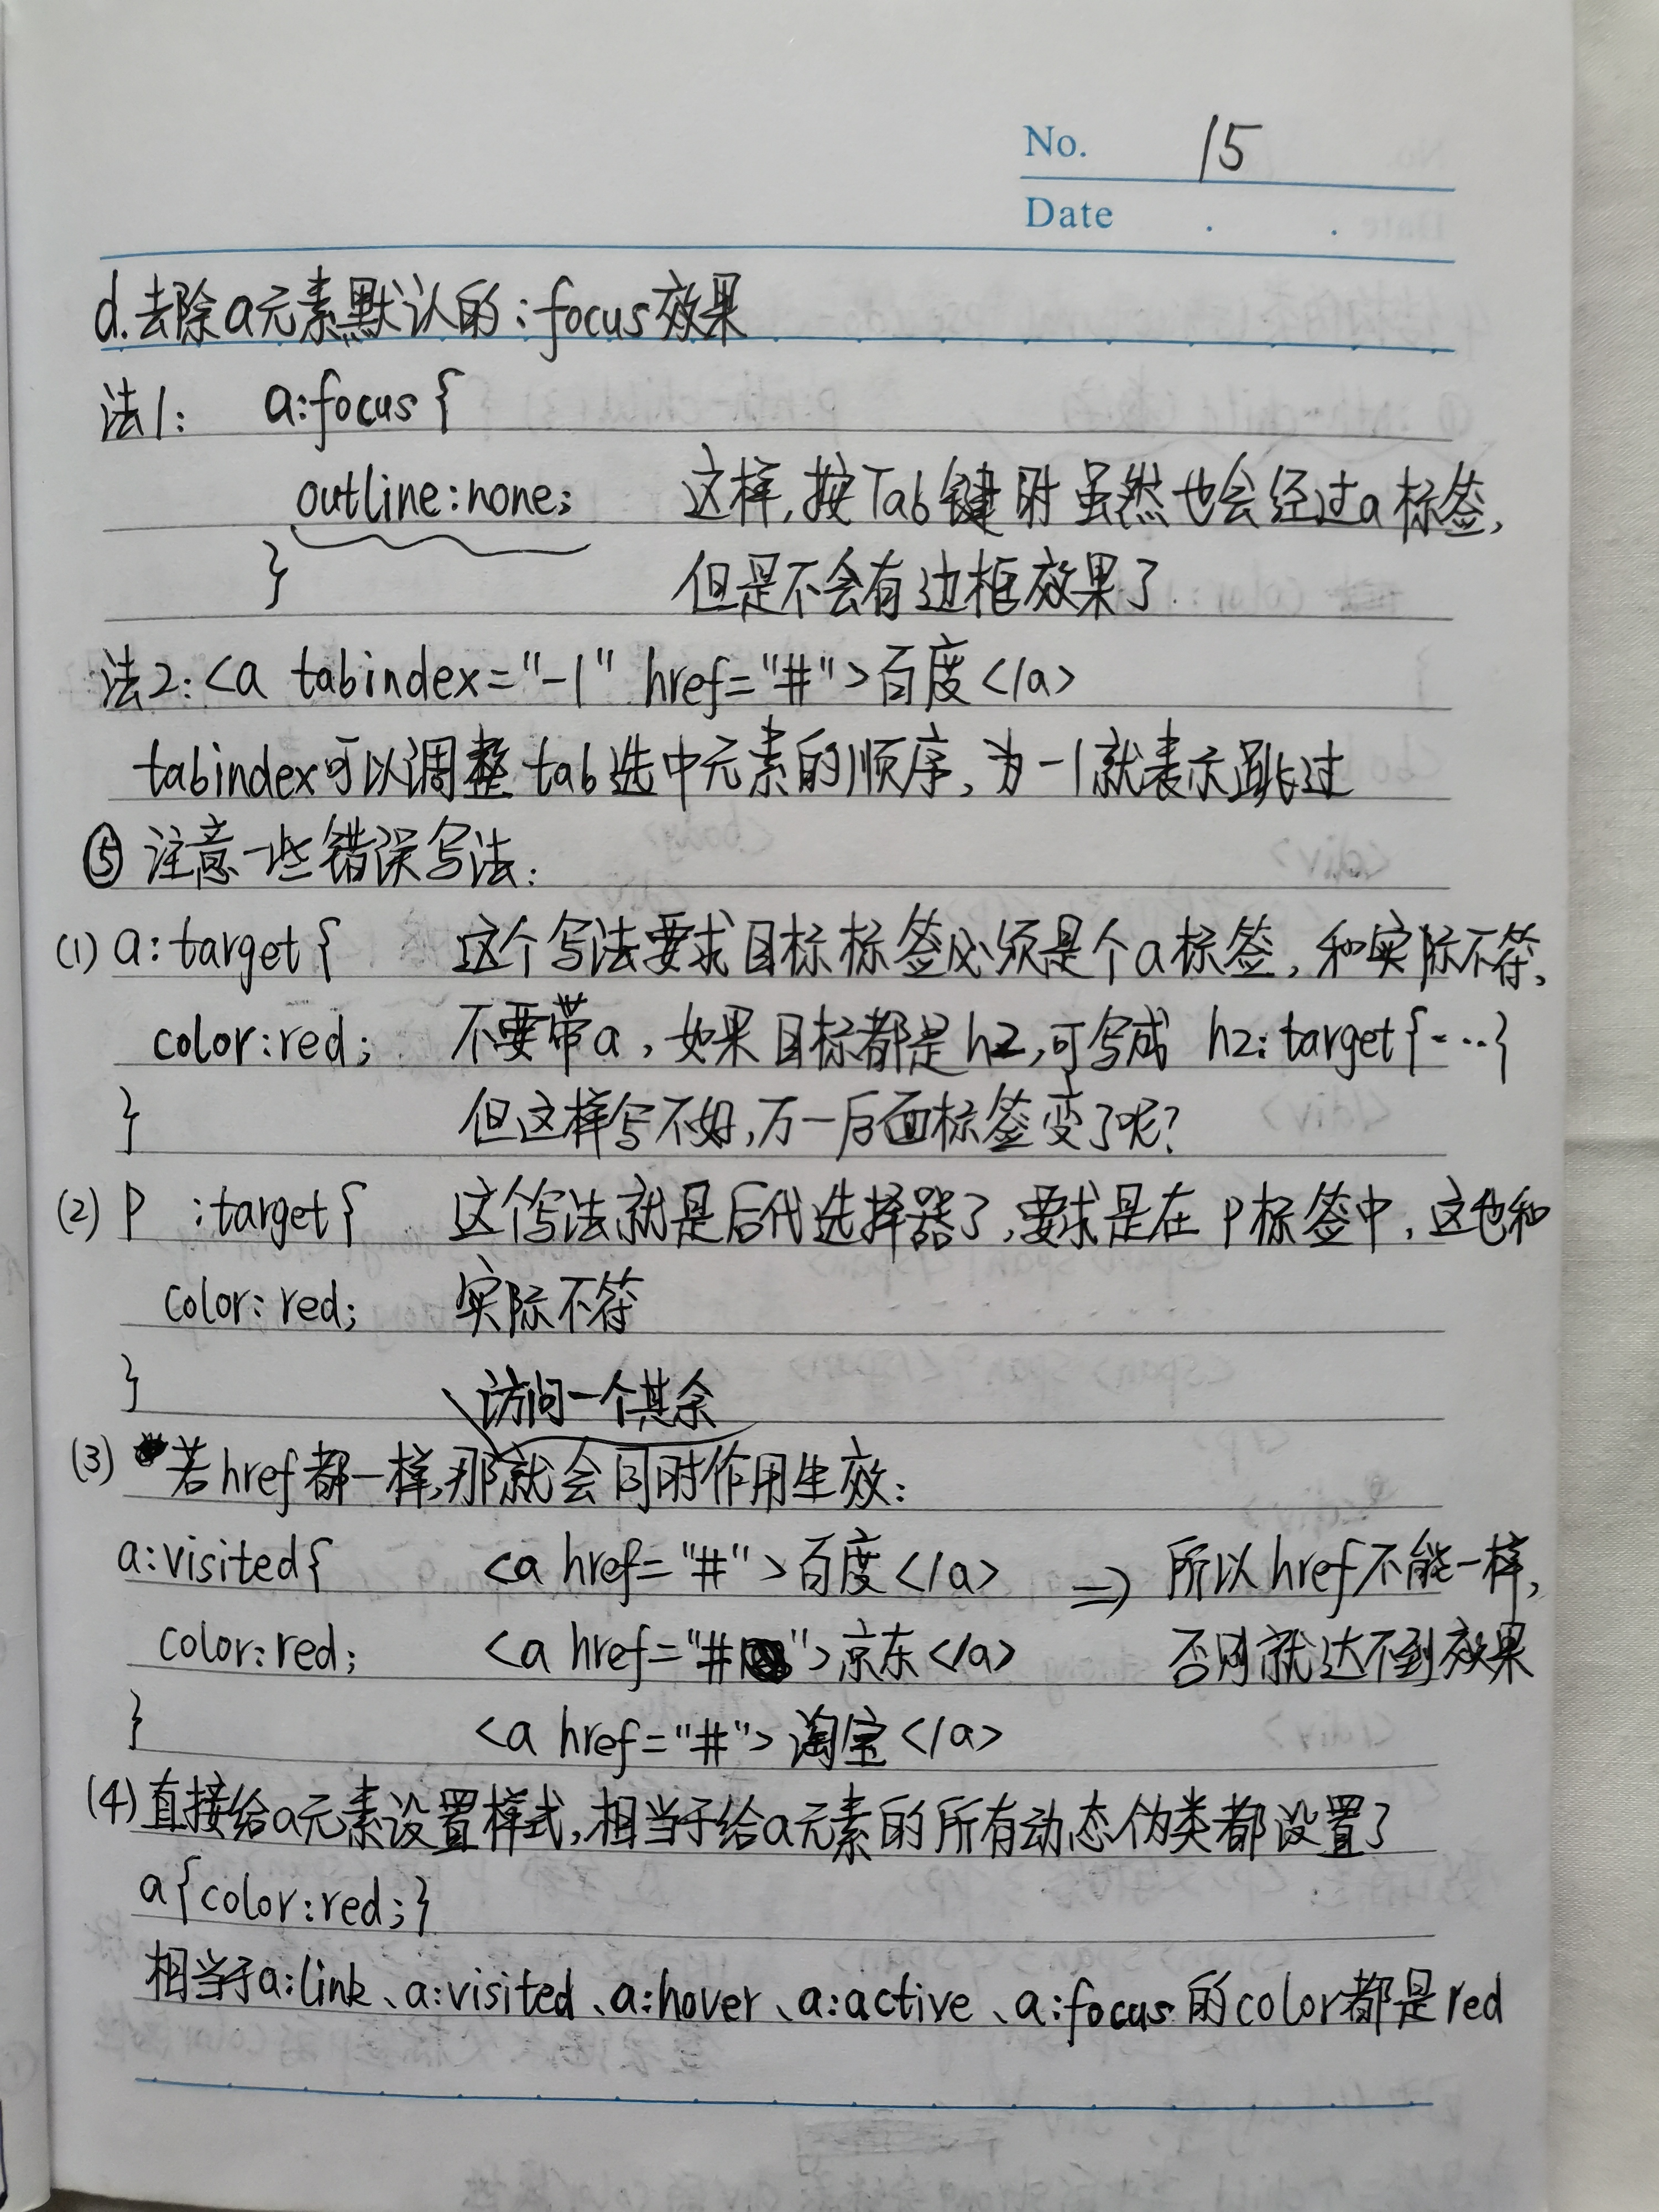 No. 15
Date . .
d.去除a元素默认的:focus效果
法1: a:focus {
outline:none; 这样,按Tab键时虽然也会经过a标签,
} 但是不会有边框效果了
法2:<a tabindex="-1" href="#">百度</a>
tabindex可以调整tab选中元素的顺序,为-1就表示跳过
⑤ 注意一些错误写法:
(1) a:target{ 这个写法要求目标标签必须是个a标签,和实际不符,
color:red; 不要带a,如果目标都是h2,可写成 h2:target{…}
} 但这样写不好,万一后面标签变了呢?
(2) p :target{ 这个写法就是后代选择器了,要求是在p标签中,这也和
color:red; 实际不符
}
访问一个其余
(3) 若href都一样,那就会同时作用生效:
a:visited{ <a href="#">百度</a> => 所以href不能一样,
color:red; <a href="#">京东</a> 否则就达不到效果
} <a href="#">淘宝</a>
(4)直接给a元素设置样式,相当于给a元素的所有动态伪类都设置了
a{color:red;}
相当于a:link、a:visited、a:hover、a:active、a:focus的color都是red